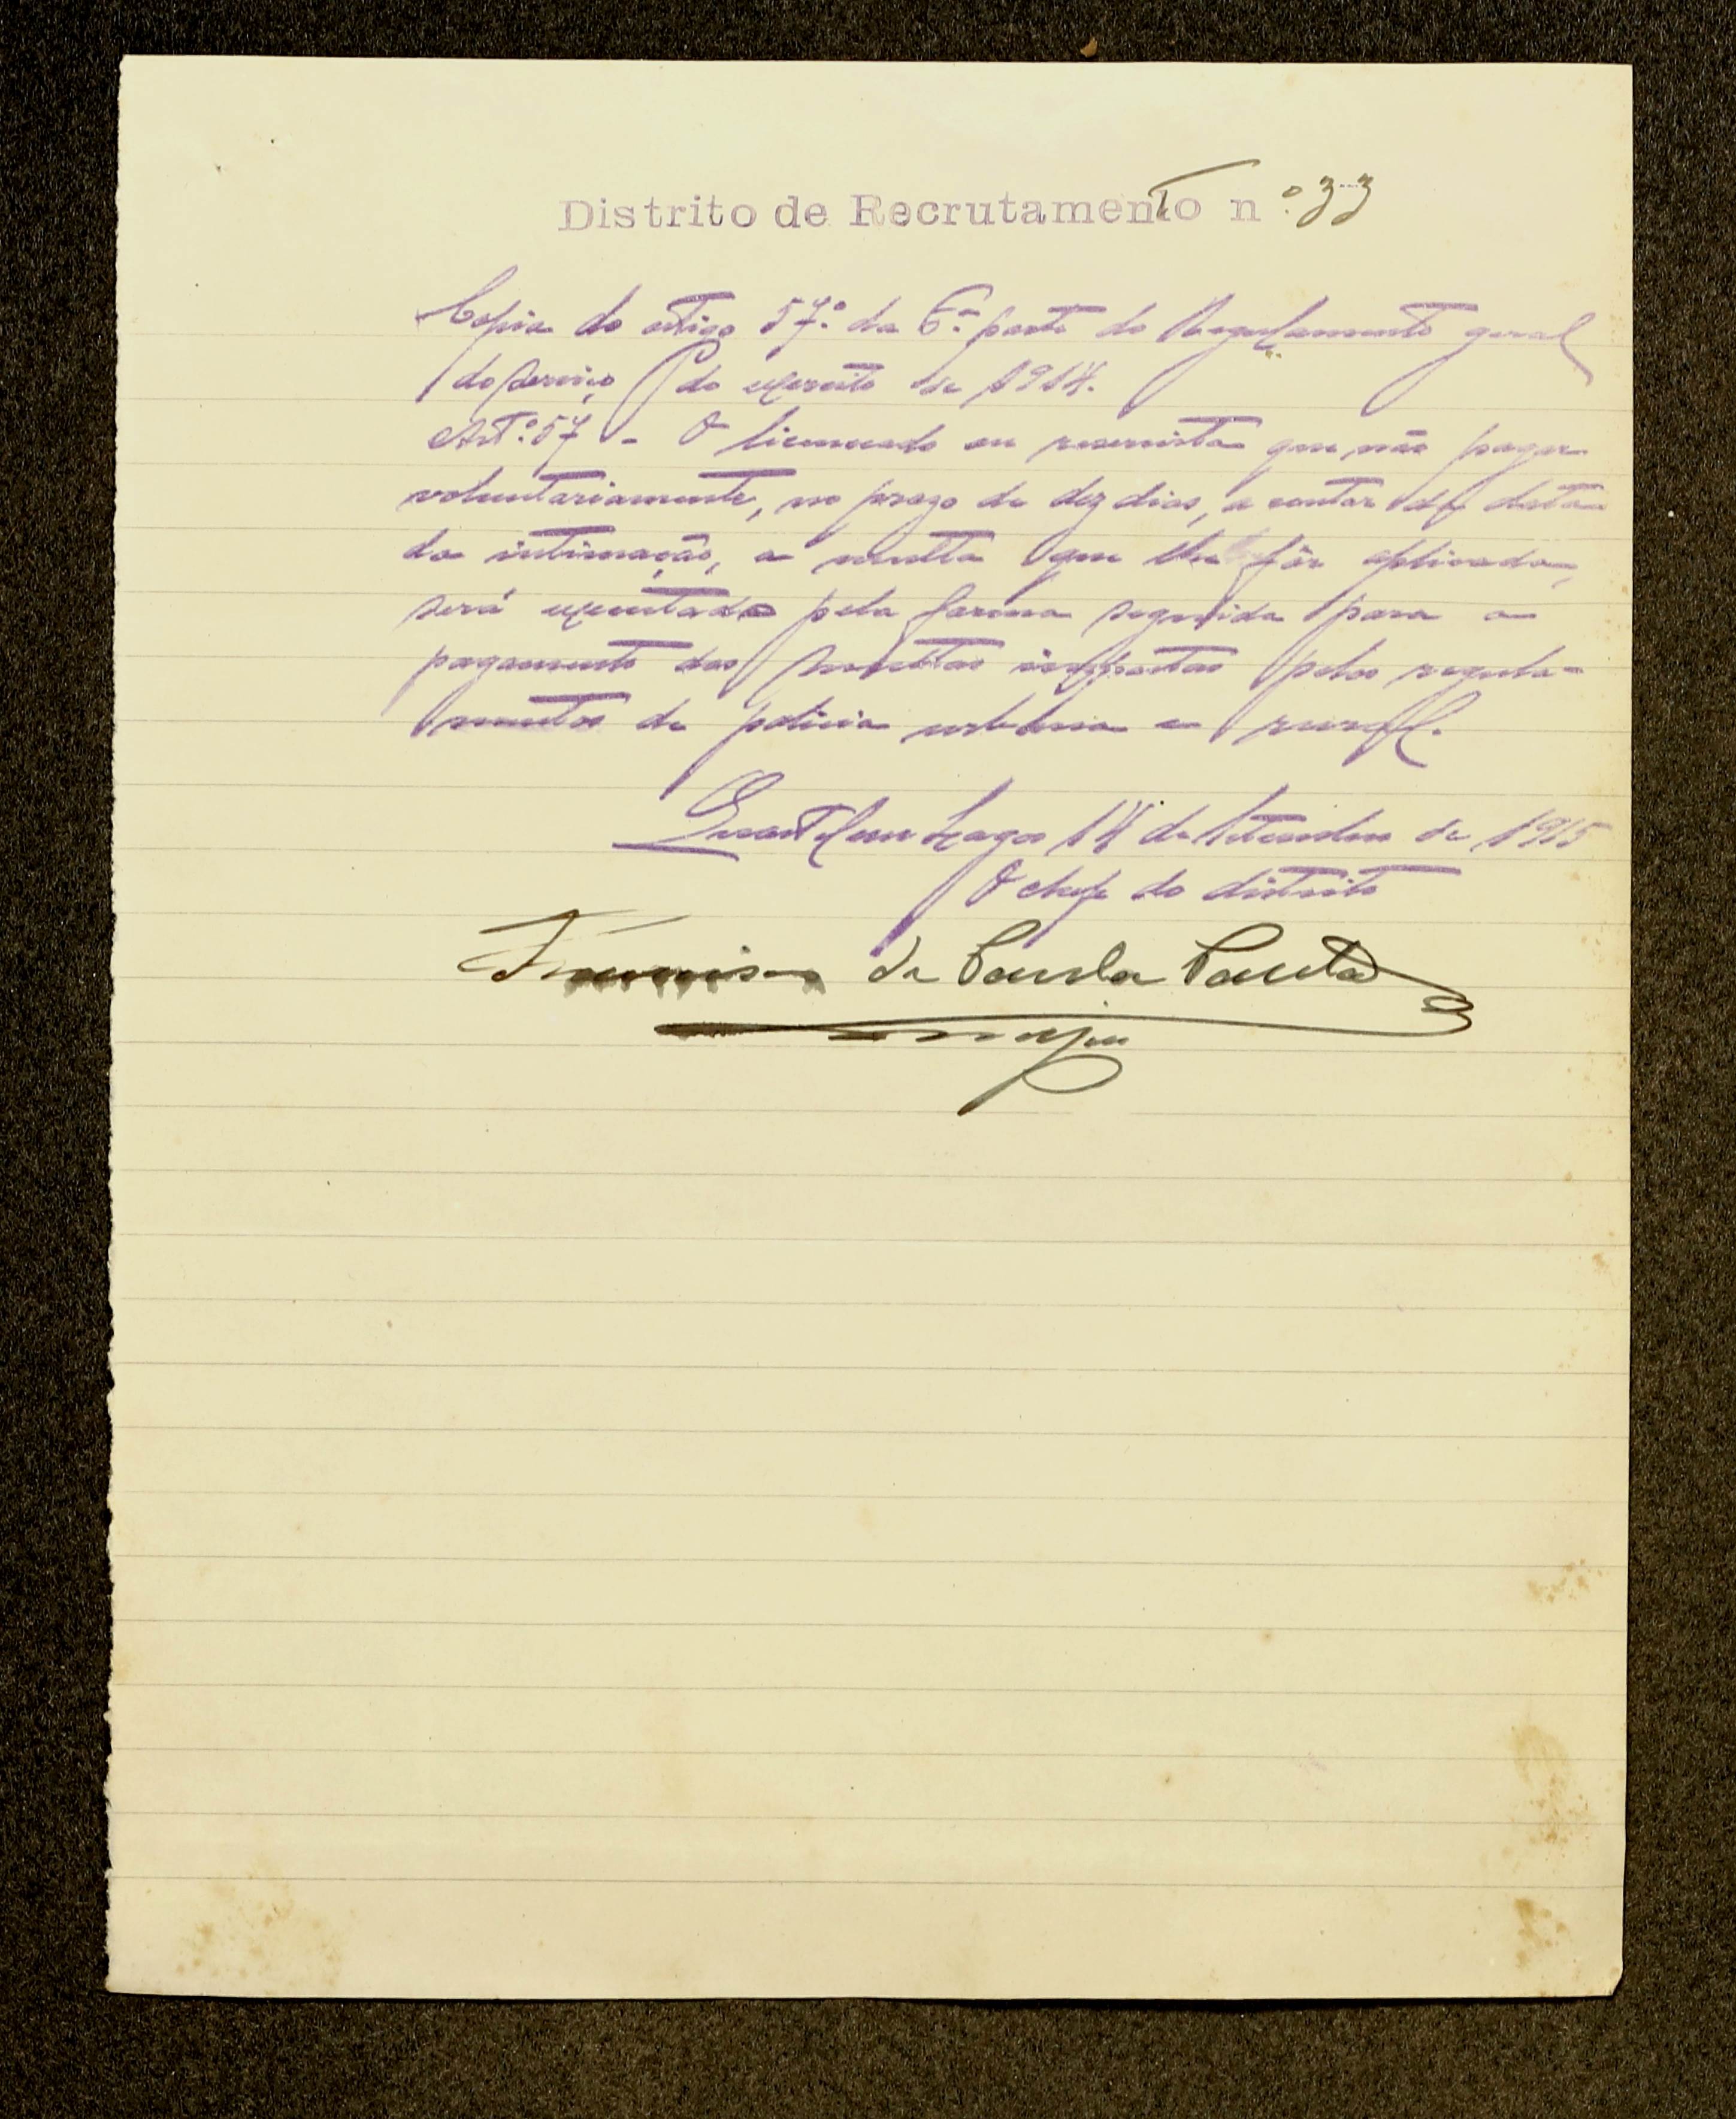 Distrito de Recrutamento n.º 33
Copia do artigo 57.º da 6.ª parte do Regulamento geral
do serviço do exercito de 1914.
Art.º 57 - O licenceado ou reservista que não pagar
voluntariamente, no prazo de dez dias, a contar da data
da intimação, a multa que lhe fôr aplicada,
será executado pela forma seguida para o
pagamento das multas impostas pelos regula-
mentos de policia urbana e rural.
Quartel em Lagos 14 de Setembro de 1915
O chefe do distrito
Francisco de Paula
major